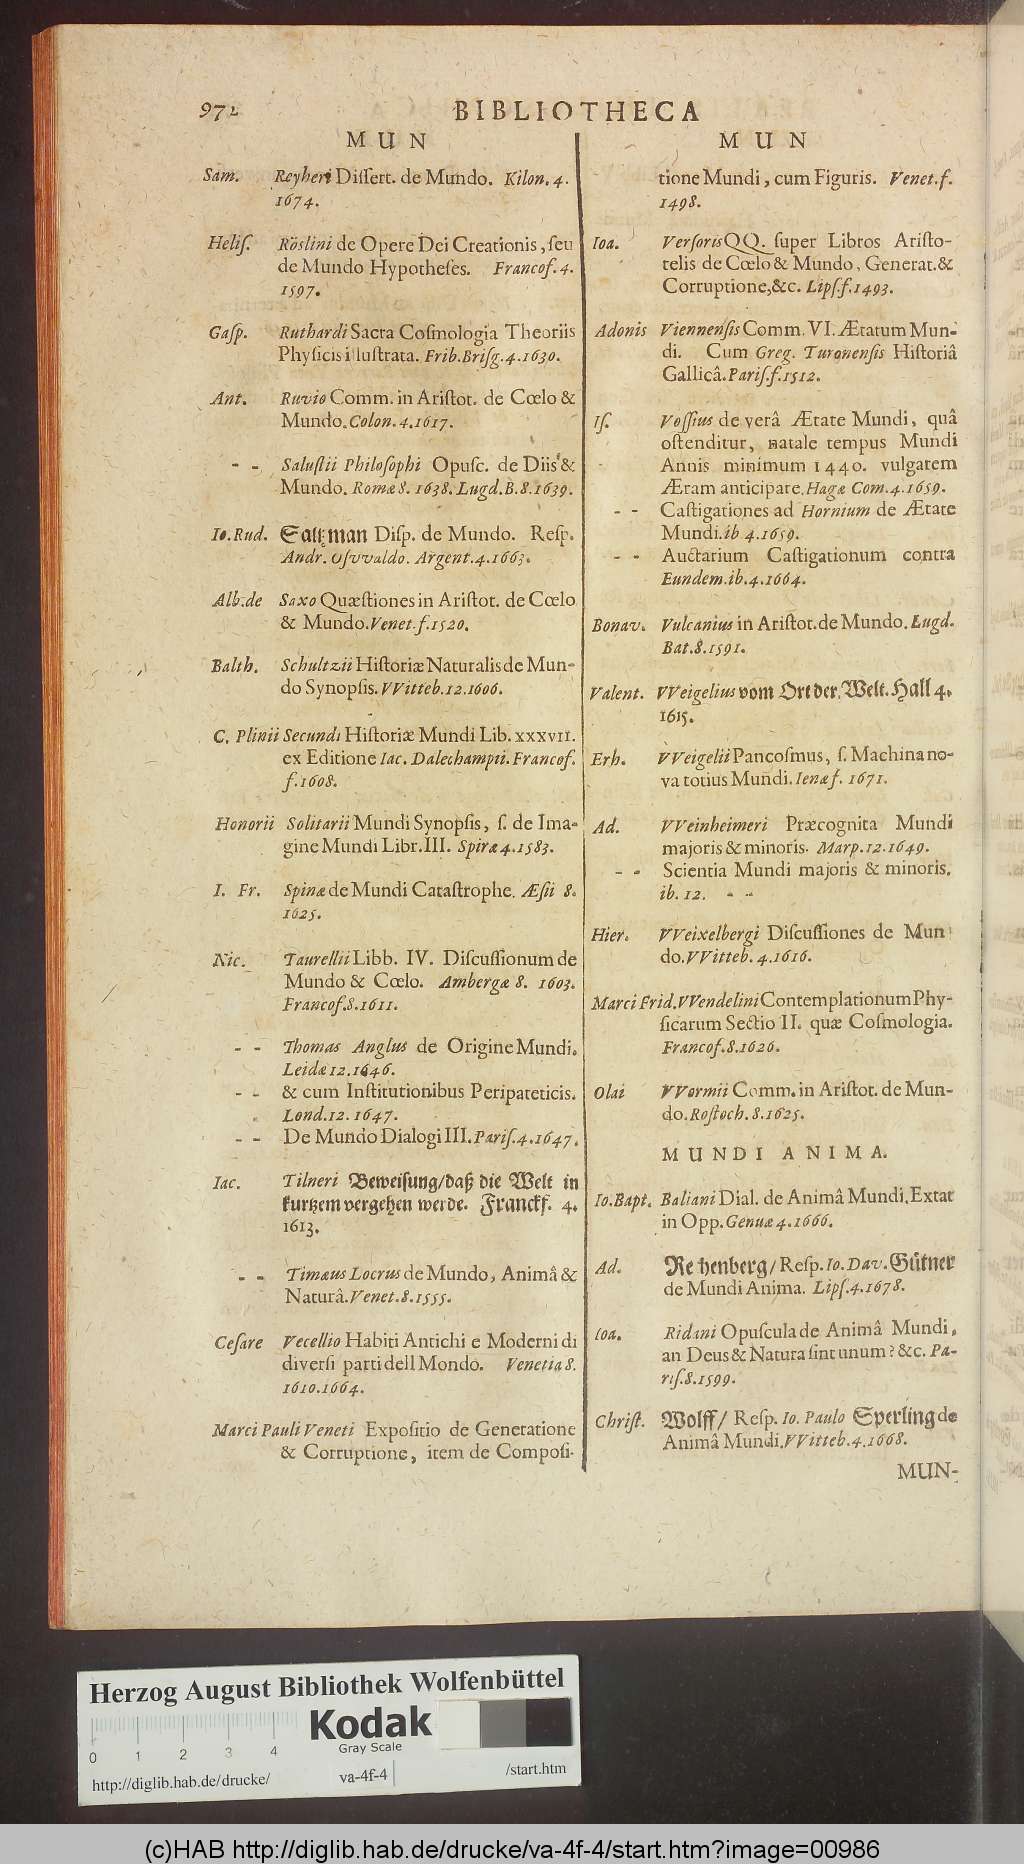 972
BIBLIOTHECA
MUN
Sam. Reyheri Dissert. de Mundo. Kilon. 4.
1674.
Helis. Röslini de Opere Dei Creationis, seu
de Mundo Hypotheses. Francof. 4.
1597.
Gasp. Ruthardi Sacra Cosmologia Theoriis
Physicis illustrata. Frib. Brisg. 4. 1630.
Ant. Ruvio Comm. in Aristot. de Cœlo &
Mundo. Colon. 4. 1617.
- - Salustii Philosophi Opusc. de Diis &
Mundo. Romæ 8. 1638. Lugd. B. 8. 1639.
Io. Rud. Saltzman Disp. de Mundo. Resp.
Andr. Osvvaldo. Argent. 4. 1663.
Alb. de Saxo Quæstiones in Aristot. de Cœlo
& Mundo. Venet. f. 1520.
Balth. Schultzii Historiæ Naturalis de Mun-
do Synopsis. VVitteb. 12. 1606.
C. Plinii Secundi Historiæ Mundi Lib. XXXVII.
ex Editione Iac. Dalechampii. Francof.
f. 1608.
Honorii Solitarii Mundi Synopsis, s. de Ima-
gine Mundi Libr. III. Spiræ 4. 1583.
I. Fr. Spinæ de Mundi Catastrophe. Æsii 8.
1625.
Nic. Taurellii Libb. IV. Discussionum de
Mundo & Cœlo. Ambergæ 8. 1603.
Francof. 8. 1611.
- - Thomas Anglus de Origine Mundi.
Leidæ 12. 1646.
- - & cum Institutionibus Peripateticis.
Lond. 12. 1647.
- - De Mundo Dialogi III. Paris. 4. 1647.
Iac. Tilneri Beweisung/ daß die Welt in
kurtzem vergehen werde. Franckf. 4.
1613.
- - Timæus Locrus de Mundo, Animâ &
Naturâ. Venet. 8. 1555.
Cesare Vecellio Habiti Antichi e Moderni di
diversi parti dell Mondo. Venetia 8.
1610. 1664.
Marci Pauli Veneti Expositio de Generatione
& Corruptione, item de Composi-
MUN
tione Mundi, cum Figuris. Venet. f.
1498.
Ioa. Versoris QQ. super Libros Aristo-
telis de Cœlo & Mundo, Generat. &
Corruptione, &c. Lips. f. 1493.
Adonis Viennensis Comm. VI. Ætatum Mun-
di. Cum Greg. Turonensis Historiâ
Gallicâ. Paris. f. 1512.
Is. Vossius de verâ Ætate Mundi, quâ
ostenditur, natale tempus Mundi
Annis minimum 1440. vulgarem
Æram anticipare. Hagæ Com. 4. 1659.
- - Castigationes ad Hornium de Ætate
Mundi. ib 4. 1659.
- - Auctarium Castigationum contra
Eundem. ib. 4. 1664.
Bonav. Vulcanius in Aristot. de Mundo. Lugd.
Bat. 8. 1591.
Valent. VVeigelius vom Ort der Welt. Hall 4.
1615.
Erh. VVeigelii Pancosmus, s. Machina no-
va totius Mundi. Ienæ f. 1671.
Ad. VVeinheimeri Præcognita Mundi
majoris & minoris. Marp. 12. 1649.
- - Scientia Mundi majoris & minoris.
ib. 12. - -
Hier. VVeixelbergi Discussiones de Mun
do. VVitteb. 4. 1616.
Marci Frid. VVendelini Contemplationum Phy-
sicarum Sectio II. quæ Cosmologia.
Francof. 8. 1626.
Olai VVormii Comm. in Aristot. de Mun-
do. Rostoch. 8. 1625.
MUNDI ANIMA.
Io. Bapt. Baliani Dial. de Animâ Mundi. Extat
in Opp. Genuæ 4. 1666.
Ad. Rechenberg/ Resp. Io. Dav. Gütner
de Mundi Anima. Lips. 4. 1678.
Ioa. Ridani Opuscula de Animâ Mundi,
an Deus & Natura sint unum? &c. Pa-
ris. 8. 1599.
Christ. Wolff/ Resp. Io. Paulo Sperling de
Animâ Mundi. VVitteb. 4. 1668.
MUN-
Herzog August Bibliothek Wolfenbüttel
Kodak
Gray Scale
0 1 2 3 4
http://diglib.hab.de/drucke/ va-4f-4 /start.htm
(c)HAB http://diglib.hab.de/drucke/va-4f-4/start.htm?image=00986